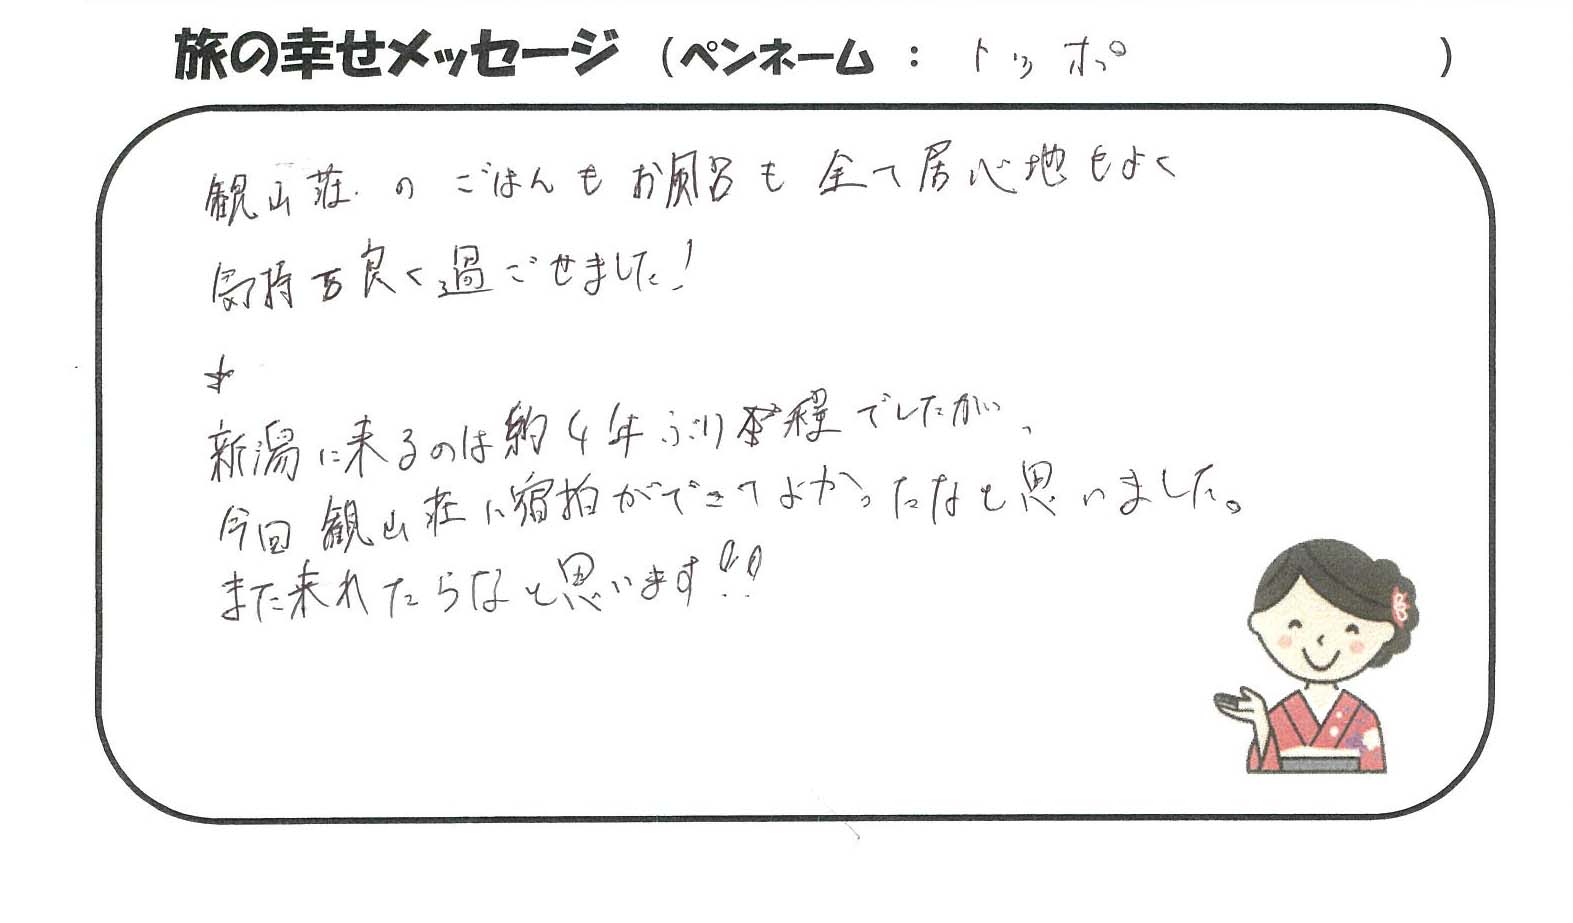 旅の幸せメッセージ (ペンネーム : トッポ )
観山荘のごはんもお風呂も全て居心地もよく
気持ち良く過ごせました!
新潟に来るのは約4年ぶり程でしたが、
今回観山荘に宿泊ができてよかったなと思いました。
また来れたらなと思います!!